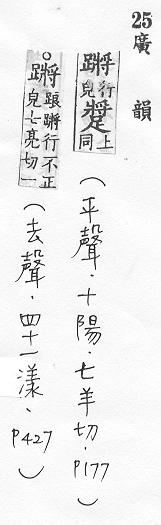 25 廣韻
蹡行皃 上同(平聲.十陽.七羊切.P177)
○蹡踉蹡行不正皃七亮切一(去聲.四十一漾、P427)